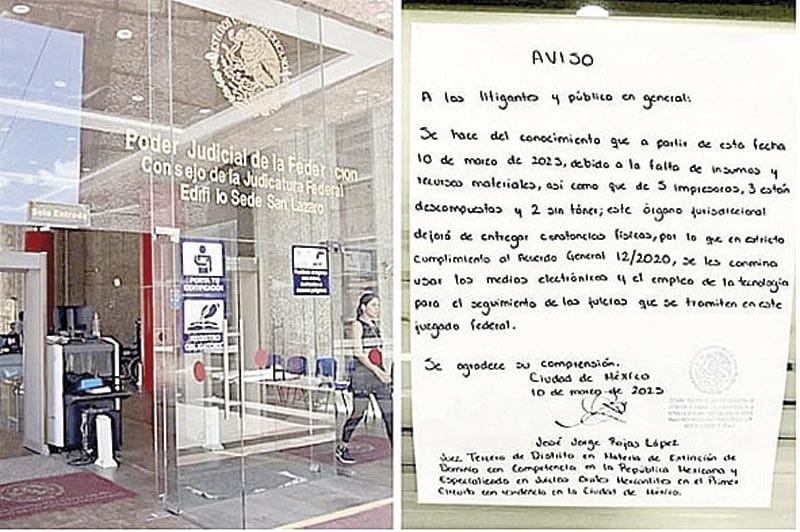 Poder Judicial de la Feder con
Consejo de la Judicatura Federal
Edifi io Sede San Lázaro
Solo Entrada
PORTA TU
AVISO
A los litigantes y público en general:
Se hace del conocimiento que a partir de esta fecha
10 de marzo de 2023, debido a la falta de insumos y
recursos materiales, así como que de 5 impresoras, 3 están
descompuestas y 2 sin tóner; este órgano jurisdiccional
dejará de entregar constancias físicas, por lo que en estricto
cumplimiento al Acuerdo General 12/2020, se les conmina
usar los medios electrónicos y el empleo de la tecnología
para el seguimiento de los juicios que se tramiten en este
juzgado federal.
Se agradece su comprensión.
Ciudad de México
10 de marzo de 2023
José Jorge Rojas López
Juez Tercero de Distrito en Materia de Extinción de
Dominio con Competencia en la República Mexicana y
Especializado en Juicios Orales Mercantiles en el Primer
Circuito con residencia en la Ciudad de México.